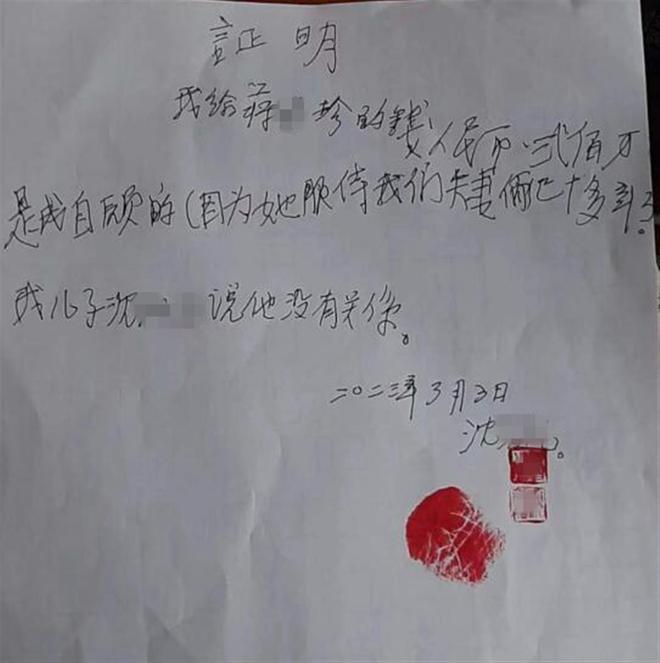 証明
我给蒋 珍的錢人民币.弍佰万
是我自願的(因为她服侍我们夫妻俩已十多年了。
我儿子沈 说他没有关係。
二〇二三年3月3日
沈 。